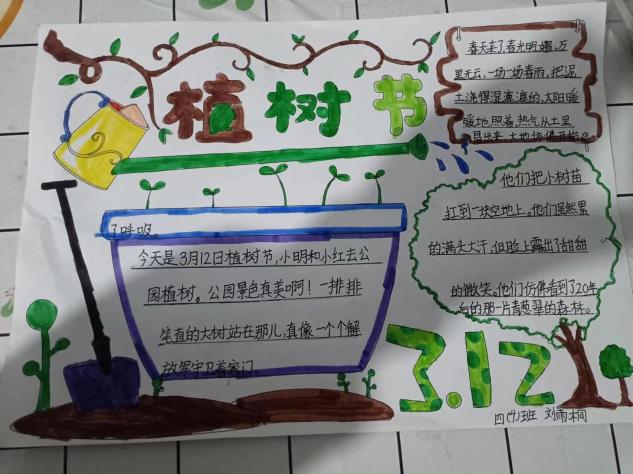 植树节
春天来了,春光明媚,万
里无云,一场一场春雨,把泥
土浇得湿漉漉的,太阳暖
暖地照着,热气从土里
冒出来,大地仿佛开始
了呼吸。
今天是3月12日植树节,小明和小红去公
园植树。公园景色真美啊!一排排
笔直的大树站在那儿,真像一个个解
放军守卫着家门。
他们把小树苗
扛到一块空地上。他们虽然累
的满头大汗,但脸上露出了甜甜
的微笑。他们仿佛看到了20年
后的那一片青葱翠的森林。
3.12
四(4)班 刘雨桐